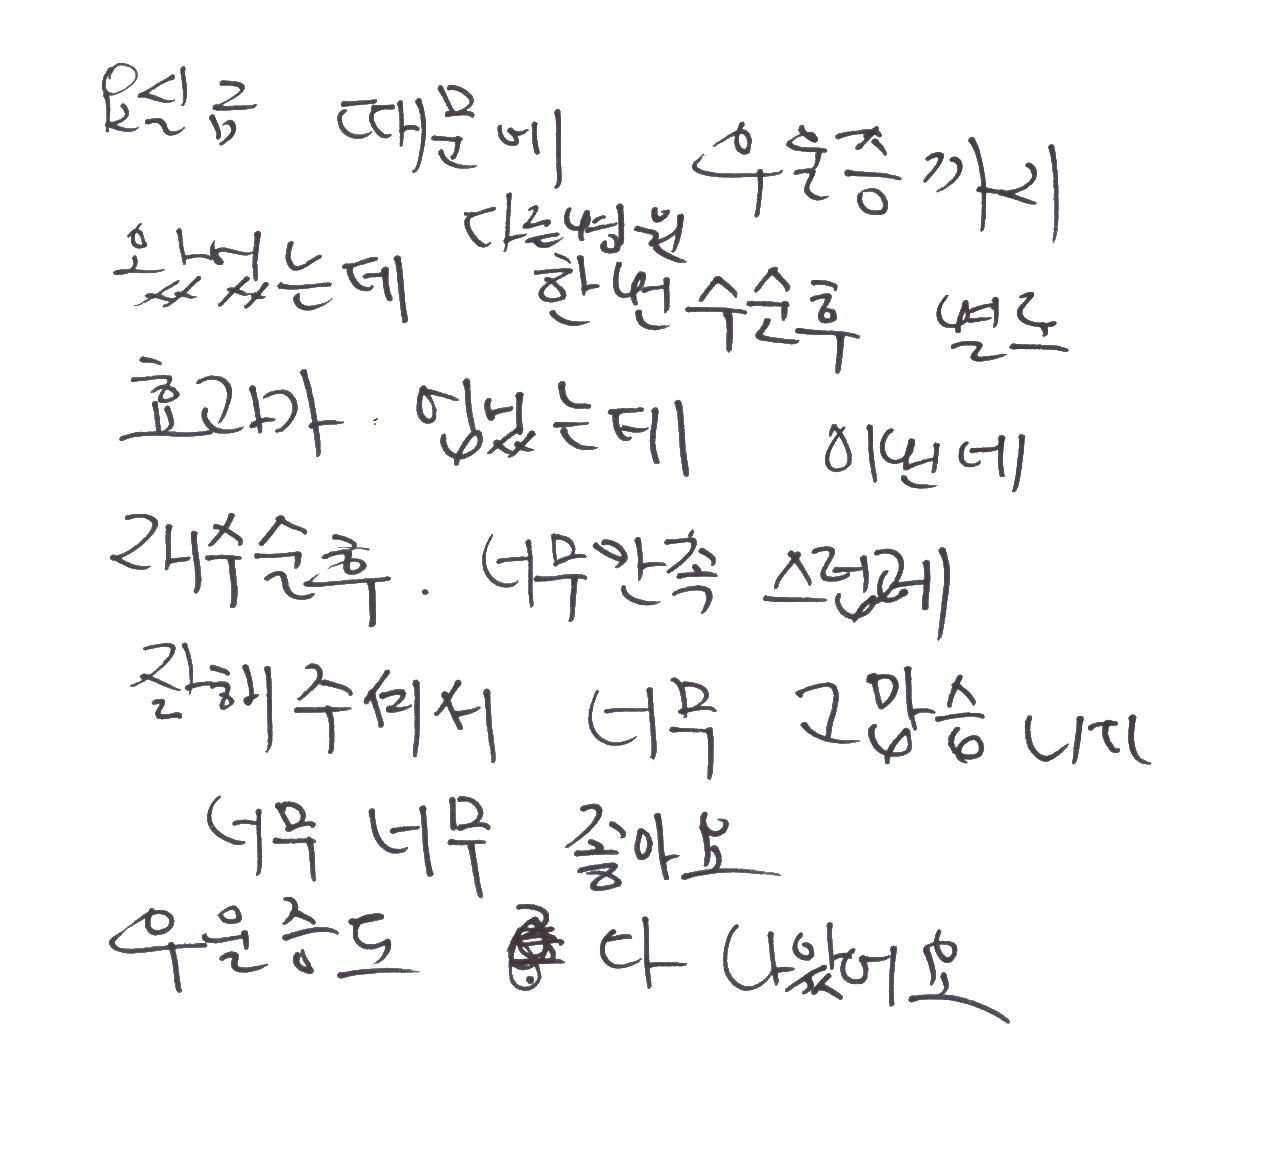 요실금 때문에 우울증까지
왔었는데 다른병원 한번 수순후 별로
효과가 업었는데 이번데
재수순후. 너무만족 스럽게
잘해주셔서 너무 고맙습니다
너무 너무 좋아요
우운증도 다 나왔어요